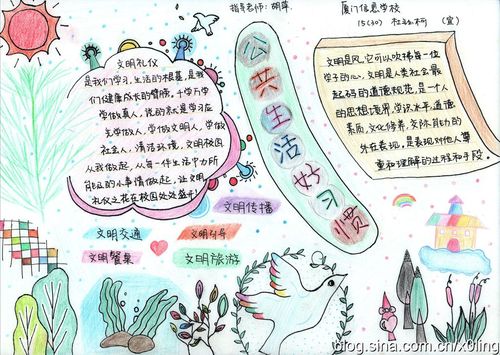 指导老师：胡萍
厦门信息学校
15(30) 杜社柯 (宣)
文明礼仪
是我们学习、生活的根基，是我
们健康成长的臂膀。千学万学
学做真人，说的就是学习应
先学做人，学做文明人，学做
社会人，清洁环境，文明校园
从我做起，从每一件生活中力所
能及的小事情做起，让文明
礼仪之花在校园处处盛开！
公共生活好习惯
文明是风，它可以吹拂每一位
学子的心，文明是人类社会最
起码的道德规范，是一个人
的思想境界、学识水平、道德
素质、文化修养、交际能力的
外在表现，是表现对他人尊
重和理解的过程和手段。
文明传播
文明交通
文明引导
文明餐桌
文明旅游
blog.sina.com.cn/x0ling